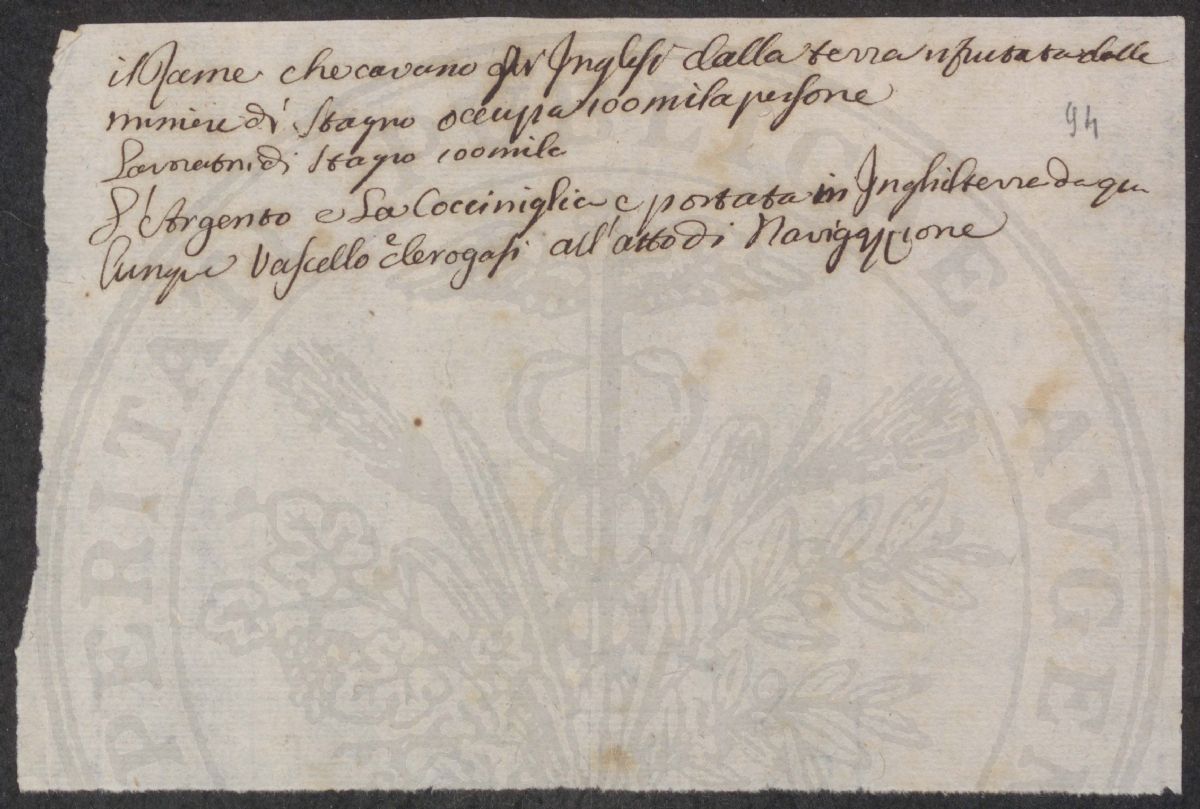 il Rame che cavano gli Inglesi dalla terra rifiutata dalle
miniere di Stagno occupa 100 mila persone
94
Lavoratori di Stagno 100 mila
L'Argento e La Cocciniglia è portata in Inghilterra da qua
lunque Vascello è derogasi all'atto di Navigazione
PERITAT PUBLICAE AUGEN